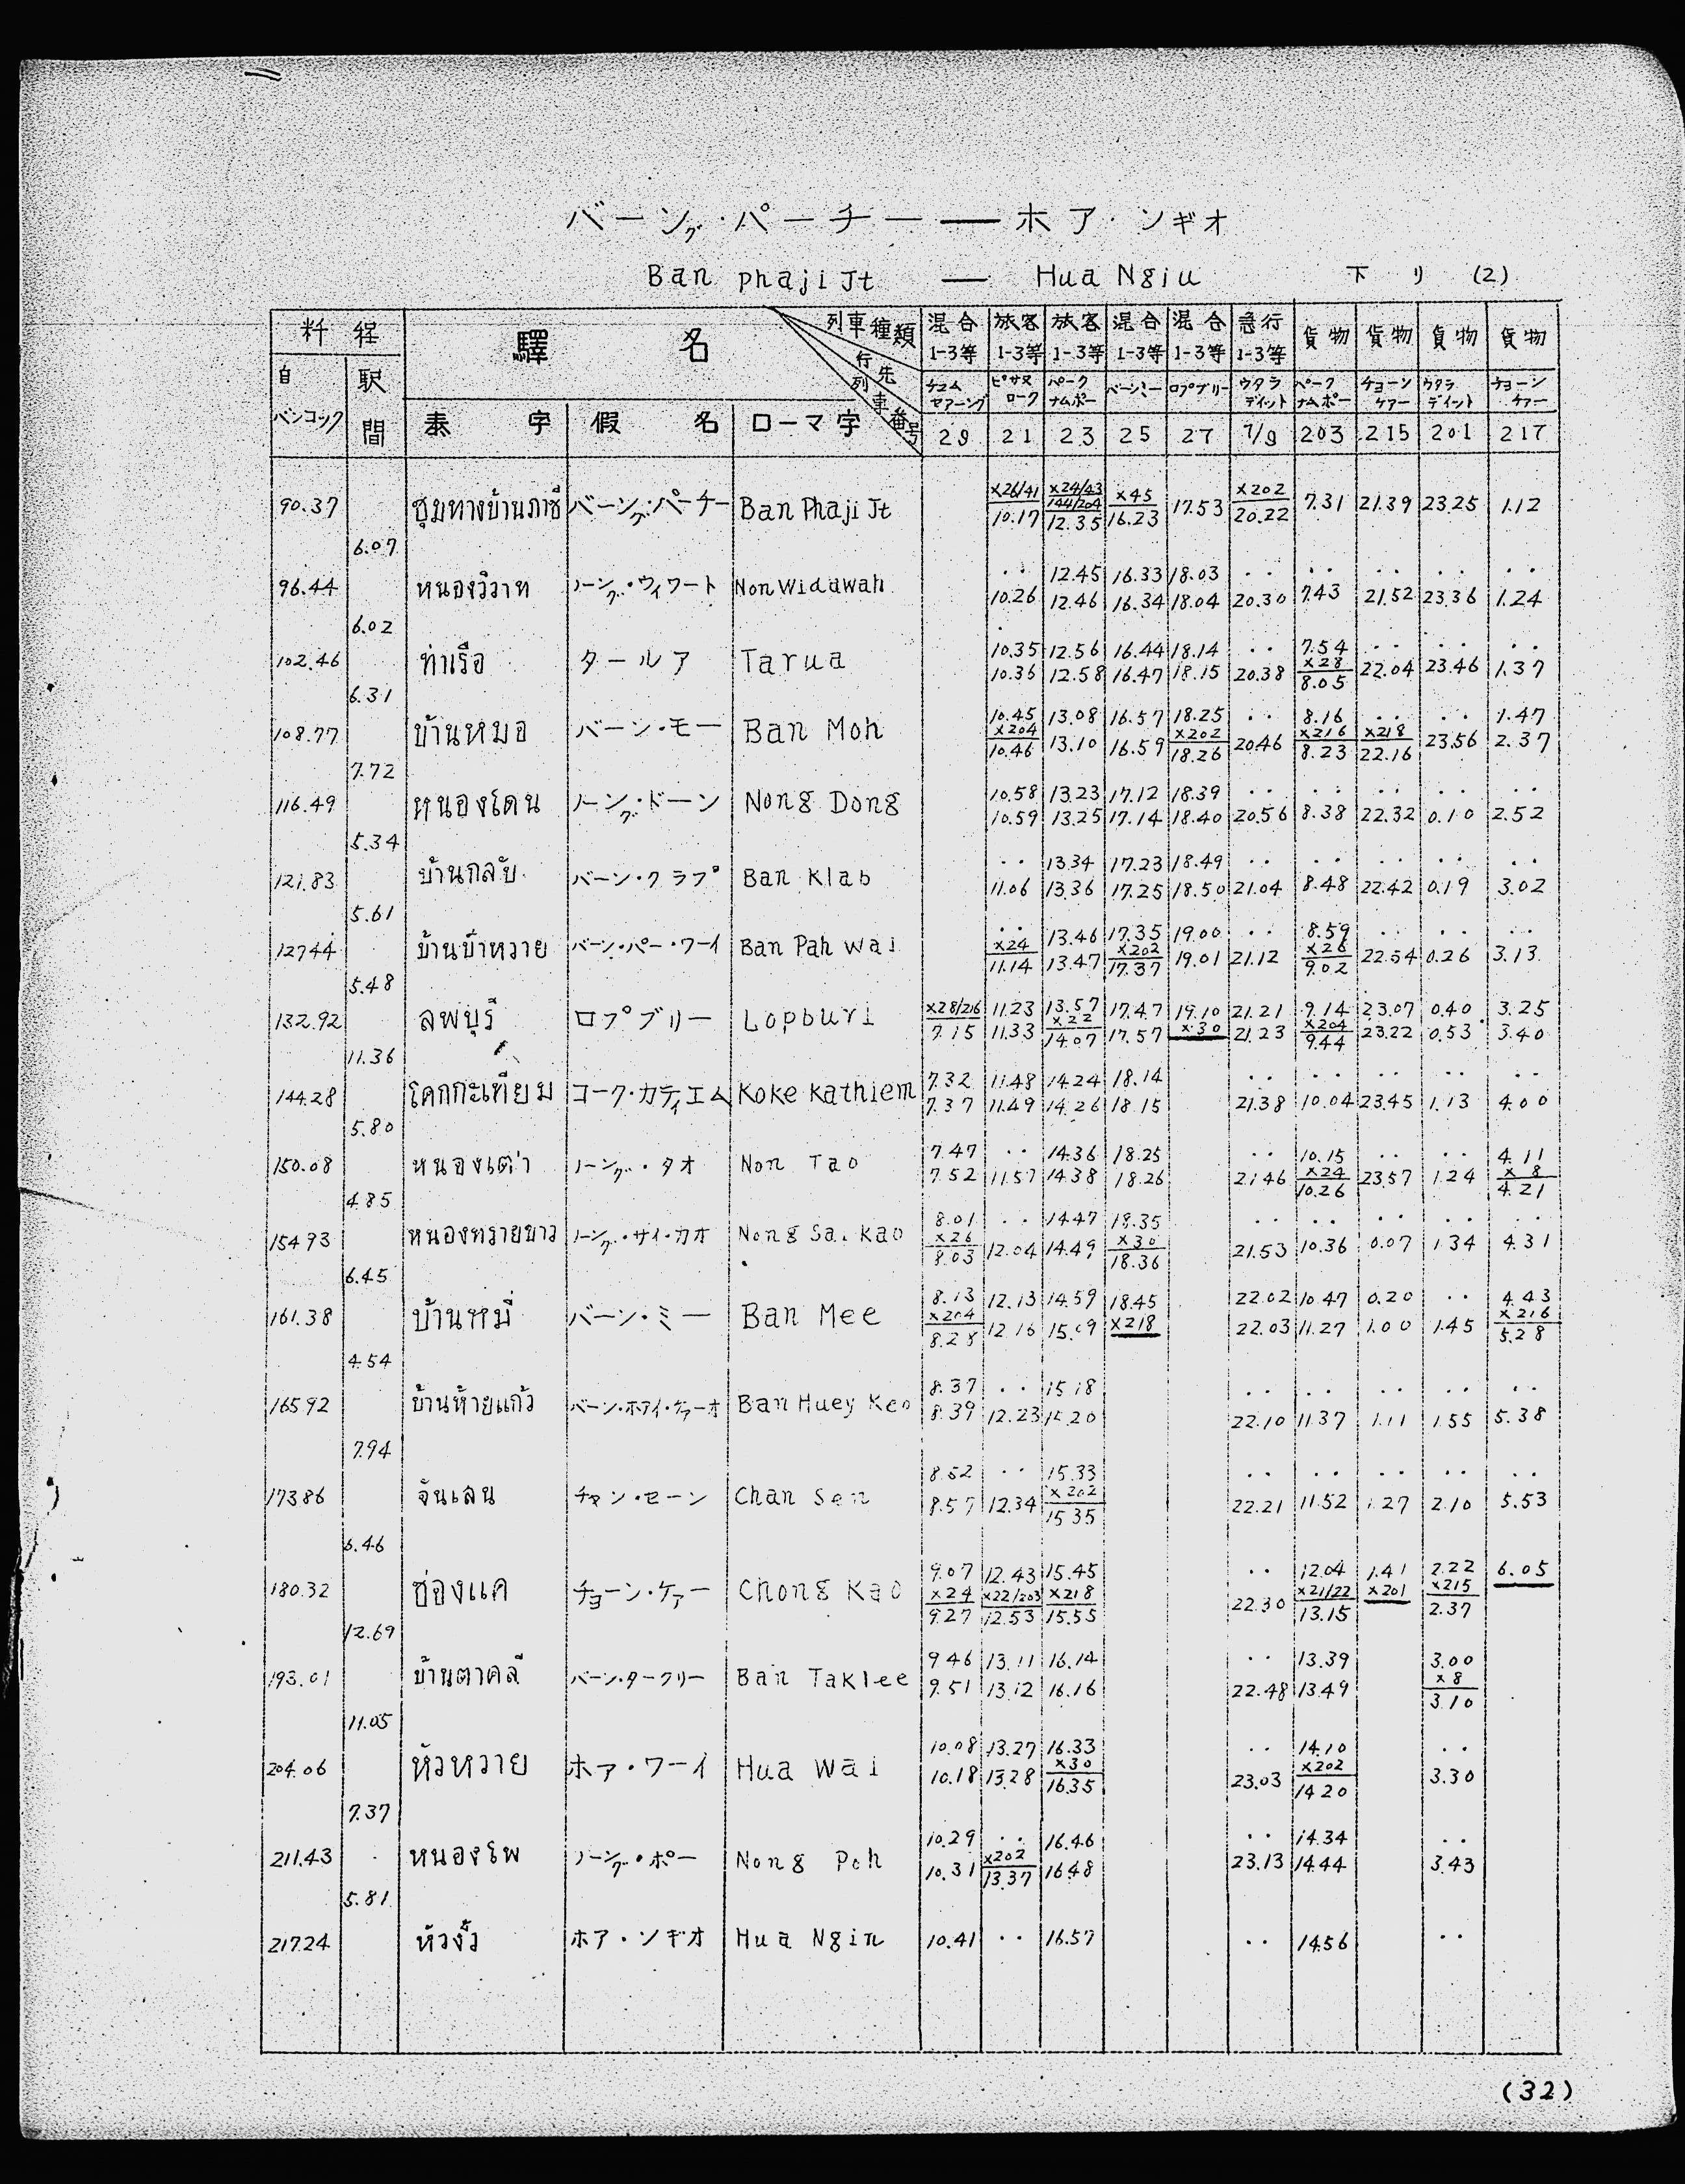 バーング・パーチー — ホア・ンギオ
Ban phaji Jt — Hua Ngiu 下り (2)
粁程 驛名 列車種類 混合 旅客 旅客 混合 混合 急行 貨物 貨物 貨物 貨物
1-3等 1-3等 1-3等 1-3等 1-3等 1-3等
自バンコック 駅間 行先 ピサヌローク パークナムポー バーンミー ロプブリー ウタラディット パークナムポー チョーンケァー ウタラディット チョーンケァー
泰字 假名 ローマ字 列車番号 29 21 23 25 27 7/9 203 215 201 217
x26/41 x24/43 x45 x202
144/204
90.37 ชุมทางบ้านภาชี バーング・パーチー Ban Phaji Jt 10.17 12.35 16.23 17.53 20.22 7.31 21.39 23.25 1.12
6.07
‥ 12.45 16.33 18.03 ‥ ‥ ‥ ‥ ‥
96.44 หนองวิวาท ノーング・ウィワート Non Widawah 10.26 12.46 16.34 18.04 20.30 7.43 21.52 23.36 1.24
6.02
10.35 12.56 16.44 18.14 ‥ 7.54 ‥ ‥ ‥
x28
102.46 ท่าเรือ タールア Tarua 10.36 12.58 16.47 18.15 20.38 8.05 22.04 23.46 1.37
6.31
10.45 13.08 16.57 18.25 ‥ 8.16 ‥ ‥ 1.47
x204 x202 x216 x218
108.77 บ้านหมอ バーン・モー Ban Moh 10.46 13.10 16.59 18.26 20.46 8.23 22.16 23.56 2.37
7.72
10.58 13.23 17.12 18.39 ‥ ‥ ‥ ‥ ‥
116.49 หนองโดน ノーング・ドーン Nong Dong 10.59 13.25 17.14 18.40 20.56 8.38 22.32 0.10 2.52
5.34
‥ 13.34 17.23 18.49 ‥ ‥ ‥ ‥ ‥
121.83 บ้านกลับ バーン・クラプ Ban Klab 11.06 13.36 17.25 18.50 21.04 8.48 22.42 0.19 3.02
5.61
‥ 13.46 17.35 19.00 ‥ 8.59 ‥ ‥ ‥
x24 x202 x26
127.44 บ้านป่าหวาย バーン・パー・ワーイ Ban Pah Wai 11.14 13.47 17.37 19.01 21.12 9.02 22.54 0.26 3.13
5.48
x28/216 11.23 13.57 17.47 19.10 21.21 9.14 23.07 0.40 3.25
x22 x30 x204
132.92 ลพบุรี ロプブリー Lopburi 7.15 11.33 14.07 17.57 21.23 9.44 23.22 0.53 3.40
11.36
7.32 11.48 14.24 18.14 ‥ ‥ ‥ ‥ ‥
144.28 โคกกะเทียม コーク・カティエム Koke Kathiem 7.37 11.49 14.26 18.15 21.38 10.04 23.45 1.13 4.00
5.80
7.47 ‥ 14.36 18.25 ‥ 10.15 ‥ ‥ 4.11
x24 x8
150.08 หนองเต่า ノーング・タオ Non Tao 7.52 11.57 14.38 18.26 21.46 10.26 23.57 1.24 4.21
4.85
8.01 ‥ 14.47 18.35 ‥ ‥ ‥ ‥ ‥
x26 x30
154.93 หนองทรายขาว ノーング・サイ・カオ Nong Sai Kao 8.03 12.04 14.49 18.36 21.53 10.36 0.07 1.34 4.31
6.45
8.13 12.13 14.59 18.45 22.02 10.47 0.20 ‥ 4.43
x204 x218 x216
161.38 บ้านหมี่ バーン・ミー Ban Mee 8.28 12.16 15.09 22.03 11.27 1.00 1.45 5.28
4.54
8.37 ‥ 15.18 ‥ ‥ ‥ ‥ ‥
165.92 บ้านห้วยแก้ว バーン・ホアイ・ケァーオ Ban Huey Keo 8.39 12.23 15.20 22.10 11.37 1.11 1.55 5.38
7.94
8.52 ‥ 15.33 ‥ ‥ ‥ ‥ ‥
x202
173.86 จันเสน チャン・セーン Chan Sen 8.57 12.34 15.35 22.21 11.52 1.27 2.10 5.53
6.46
9.07 12.43 15.45 ‥ 12.04 1.41 2.22 6.05
x24 x22/203 x218 x21/22 x201 x215
180.32 ช่องแค チョーン・ケァー Chong Kao 9.27 12.53 15.55 22.30 13.15 2.37
12.69
9.46 13.11 16.14 ‥ 13.39 3.00
x8
193.01 บ้านตาคลี バーン・タークリー Ban Taklee 9.51 13.12 16.16 22.48 13.49 3.10
11.05
10.08 13.27 16.33 ‥ 14.10 ‥
x30 x202
204.06 หัวหวาย ホア・ワーイ Hua Wai 10.18 13.28 16.35 23.03 14.20 3.30
7.37
10.29 ‥ 16.46 ‥ 14.34 ‥
x202
211.43 หนองโพ ノーング・ポー Nong Poh 10.31 13.37 16.48 23.13 14.44 3.43
5.81
217.24 หัวงิ้ว ホア・ンギオ Hua Ngin 10.41 ‥ 16.57 ‥ 14.56 ‥
(32)